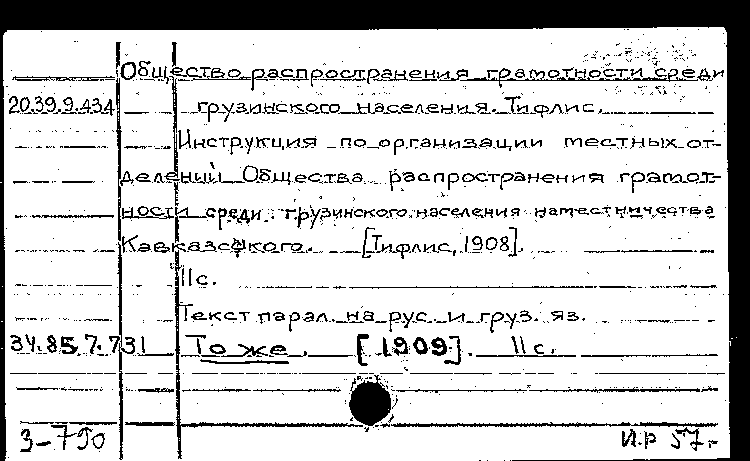 Общество распространения грамотности среди
20.39.9.434 грузинского населения. Тифлис.
Инструкция по организации местных от-
делений Общества распространения грамот-
ности среди грузинского населения наместничества
Кавказского. [Тифлис, 1908].
11с.
Текст парал. на рус. и груз. яз.
34.85.7.731 То же. [1909]. 11с.
3-790 И.Р 57г